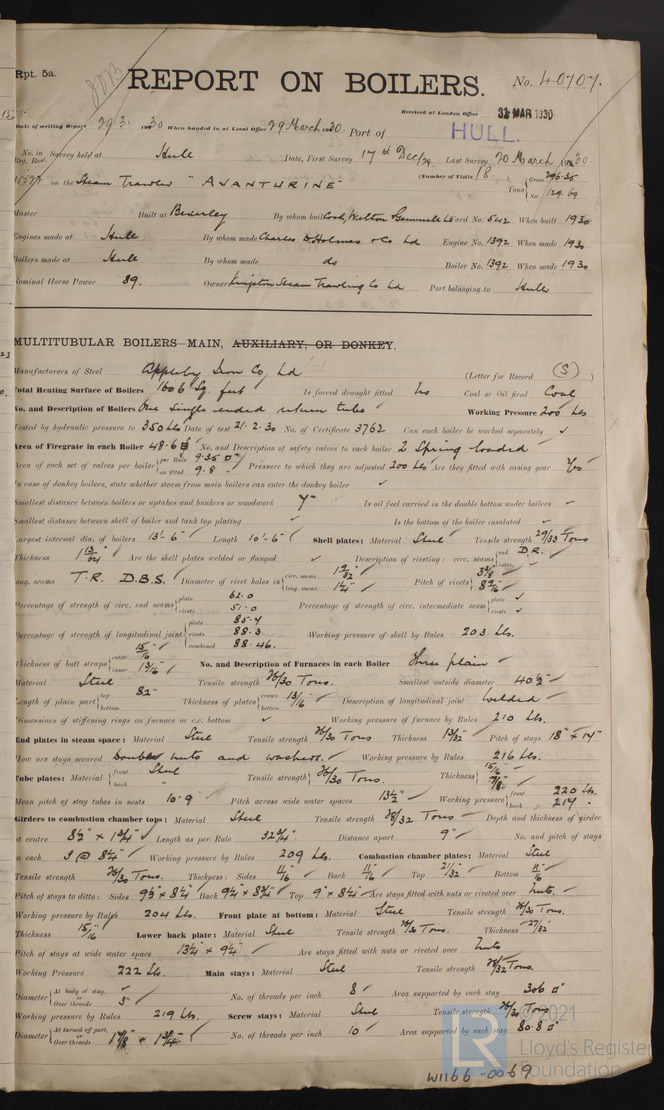 Rpt. 5a.
REPORT ON BOILERS.
No. 40707.
Received at London Office 31 MAR 1930
Date of writing Report 29.3. 1930 When handed in at Local Office 29 March 1930. Port of HULL.
No. in Reg. Book. Survey held at Hull Date, First Survey 17th Dec/29 Last Survey 20 March 1930
on the Steam Trawler "AVANTURINE" (Number of Visits 18.) Tons Gross 296.35 Net 129.69
Master Built at Beverley By whom built Cook, Welton Gemmell Ld Yard No. 542 When built 1930
Engines made at Hull By whom made Charles D. Holmes & Co Ld Engine No. 1392 When made 1930
Boilers made at Hull By whom made do Boiler No. 1392 When made 1930
Nominal Horse Power 89. Owners Kingston Steam Trawling Co Ld Port belonging to Hull
MULTITUBULAR BOILERS MAIN, AUXILIARY, OR DONKEY.
Manufacturers of Steel Appleby Iron Co, Ld (Letter for Record (S))
Total Heating Surface of Boilers 1606 Sq. feet Is forced draught fitted No Coal or Oil fired Coal
No. and Description of Boilers One Single ended return tube Working Pressure 200 lbs
Tested by hydraulic pressure to 350 lbs Date of test 21.2.30 No. of Certificate 3762 Can each boiler be worked separately ✓
Area of Firegrate in each Boiler 48.6 No. and Description of safety valves to each boiler 2 Spring loaded
Area of each set of valves per boiler per Rule 9.35 as fitted 9.8 Pressure to which they are adjusted 200 lbs Are they fitted with easing gear Yes
In case of donkey boilers, state whether steam from main boilers can enter the donkey boiler ✓
Smallest distance between boilers or uptakes and bunkers or woodwork Is oil fuel carried in the double bottom under boilers ✓
Smallest distance between shell of boiler and tank top plating ✓ Is the bottom of the boiler insulated ✓
Largest internal dia. of boilers 13'-6" Length 10'-6" Shell plates: Material Steel Tensile strength 29/33 Tons
Thickness Are the shell plates welded or flanged ✓ Description of riveting: circ. seams end D.R. inter. ✓
long. seams T.R. D.B.S. Diameter of rivet holes in circ. seams long. seams 1¼" Pitch of rivets
Percentage of strength of circ. end seams plate 62.0 rivets 51.0 Percentage of strength of circ. intermediate seam plate ✓ rivets ✓
Percentage of strength of longitudinal joint plate 85.4 rivets 88.3 combined 88.46. Working pressure of shell by Rules 203 lbs.
Thickness of butt straps outer 15/16" inner 1 1/16" No. and Description of Furnaces in each Boiler Three plain
Material Steel Tensile strength 26/30 Tons. Smallest outside diameter 40½"
Length of plain part top bottom 82" Thickness of plates crown bottom 13/16" Description of longitudinal joint Welded
Dimensions of stiffening rings on furnace or c.c. bottom ✓ Working pressure of furnace by Rules 210 lbs.
End plates in steam space: Material Steel Tensile strength 26/30 Tons Thickness Pitch of stays 18" x 17"
How are stays secured Double nuts and washers. Working pressure by Rules 216 lbs.
Tube plates: Material front back Steel Tensile strength 26/30 Tons. Thickness 15/16" 7/8"
Mean pitch of stay tubes in nests 10.9" Pitch across wide water spaces 13½" Working pressure front 220 lbs. back 217 "
Girders to combustion chamber tops: Material Steel Tensile strength 28/32 Tons Depth and thickness of girder
at centre 8½" x 1¾" Length as per Rule 32¾" Distance apart 9" No. and pitch of stays
in each 3 @ 8¼" Working pressure by Rules 209 lbs. Combustion chamber plates: Material Steel
Tensile strength 26/30 Tons. Thickness: Sides 11/16" Back 11/16" Top 21/32" Bottom 11/16"
Pitch of stays to ditto: Sides 9½" x 8¼" Back 9¼" x 8¾" Top 9" x 8¼" Are stays fitted with nuts or riveted over Nuts.
Working pressure by Rules 204 lbs. Front plate at bottom: Material Steel Tensile strength 26/30 Tons.
Thickness 15/16" Lower back plate: Material Steel Tensile strength 26/30 Tons. Thickness 27/32"
Pitch of stays at wide water space 13¼" x 9¼" Are stays fitted with nuts or riveted over Nuts
Working Pressure 222 lbs. Main stays: Material Steel Tensile strength 28/32 Tons.
Diameter At body of stay, or Over threads 3" No. of threads per inch 8 Area supported by each stay 306
Working pressure by Rules 219 lbs. Screw stays: Material Steel Tensile strength 26/30 Tons
Diameter At turned off part, or Over threads 1⅝" + 1¾" No. of threads per inch 10 Area supported by each stay 80.8
© 2021
LR
Lloyd's Register
Foundation
W1166-0069